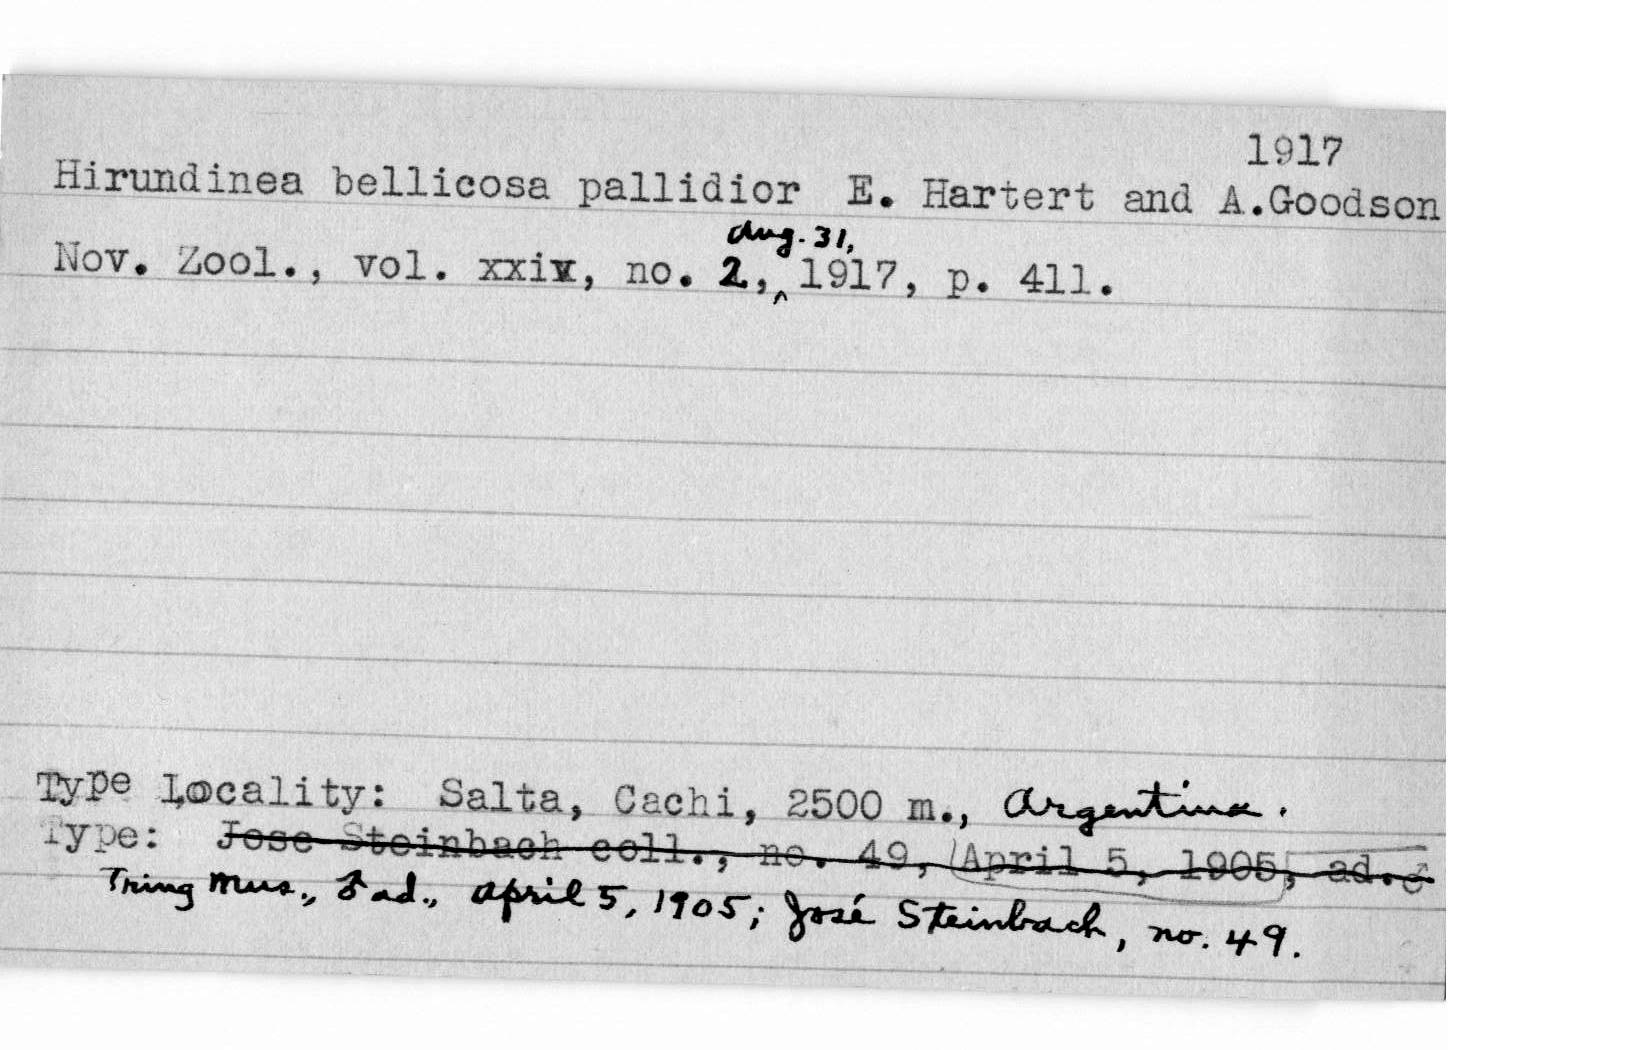 1917
Hirundinea bellicosa pallidior E. Hartert and A.Goodson
Aug. 31,
Nov. Zool., vol. xxiv, no. 2,^ 1917, p. 411.
Type Locality: Salta, Cachi, 2500 m., Argentina.
Type: Jose Steinbach coll., no. 49, April 5, 1905, ad.♂
Tring Mus., ♂ ad., April 5, 1905; José Steinbach, no. 49.